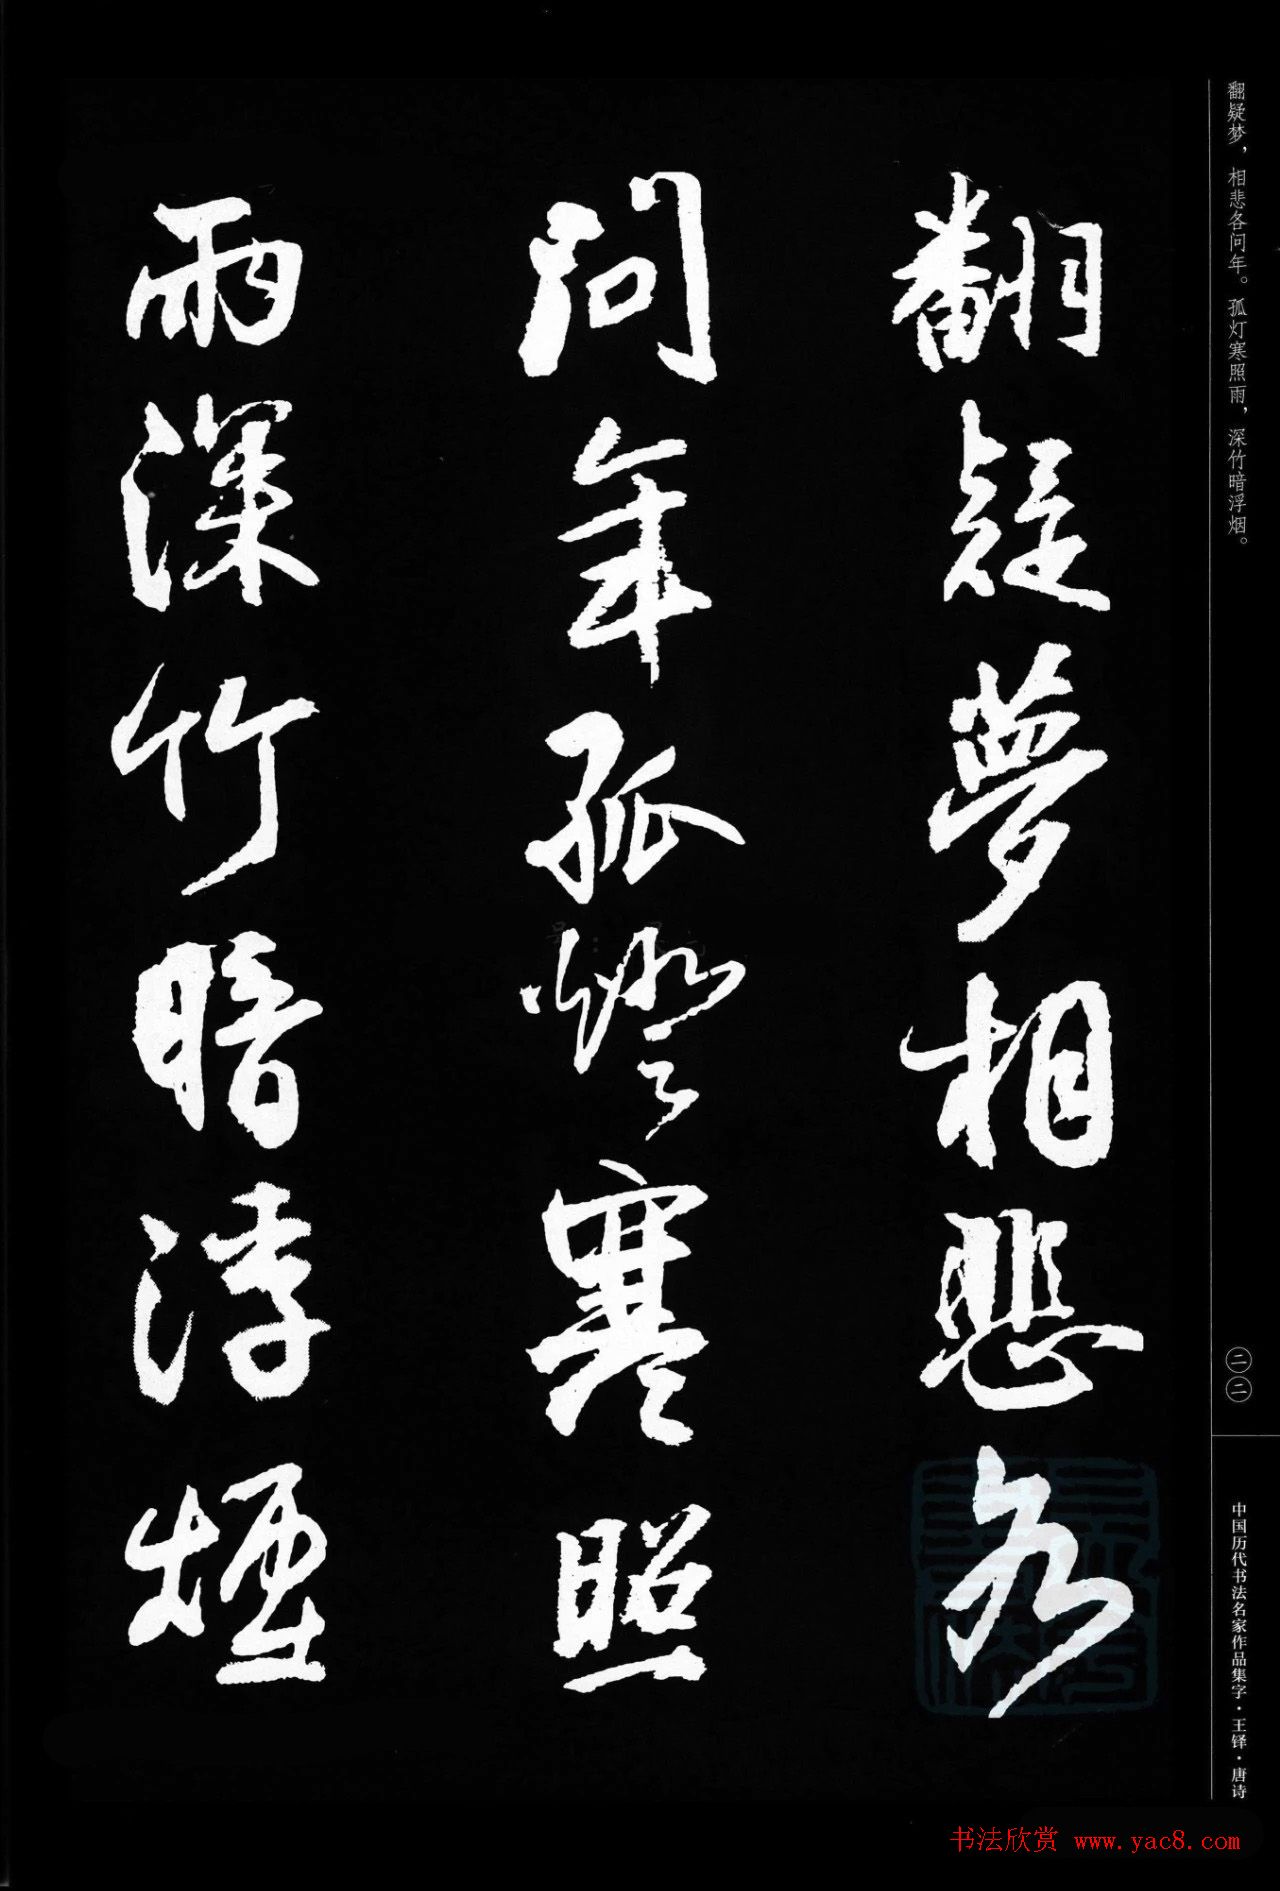 翻疑梦，相悲各问年。孤灯寒照雨，深竹暗浮烟。
翻疑夢相悲各
问年孤燈寒照
雨深竹暗浮煙
二二
中国历代书法名家作品集字·王铎·唐诗
书法欣赏 www.yac8.com